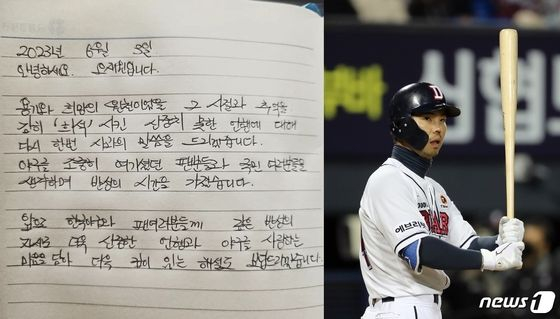 2023년 6월 5일
안녕하세요. 오재원입니다.
용기와 희망의 원천이었을 그 시절과 추억을
감히 '회석' 시킨 신중치 못한 언행에 대해
다시 한번 사과의 말씀을 드리겠습니다.
야구를 소중히 여기셨던 팬분들과 국민 여러분들을
생각하며 반성의 시간을 가졌습니다.
앞으로 한국야구와 팬여러분들께 깊은 반성의
자세로 더욱 신중한 언행과 야구를 사랑하는
마음을 담아 더욱 깊이 있는 해설로 보답드리겠습니다.
D
BEARS
에브리봇
신협
news1